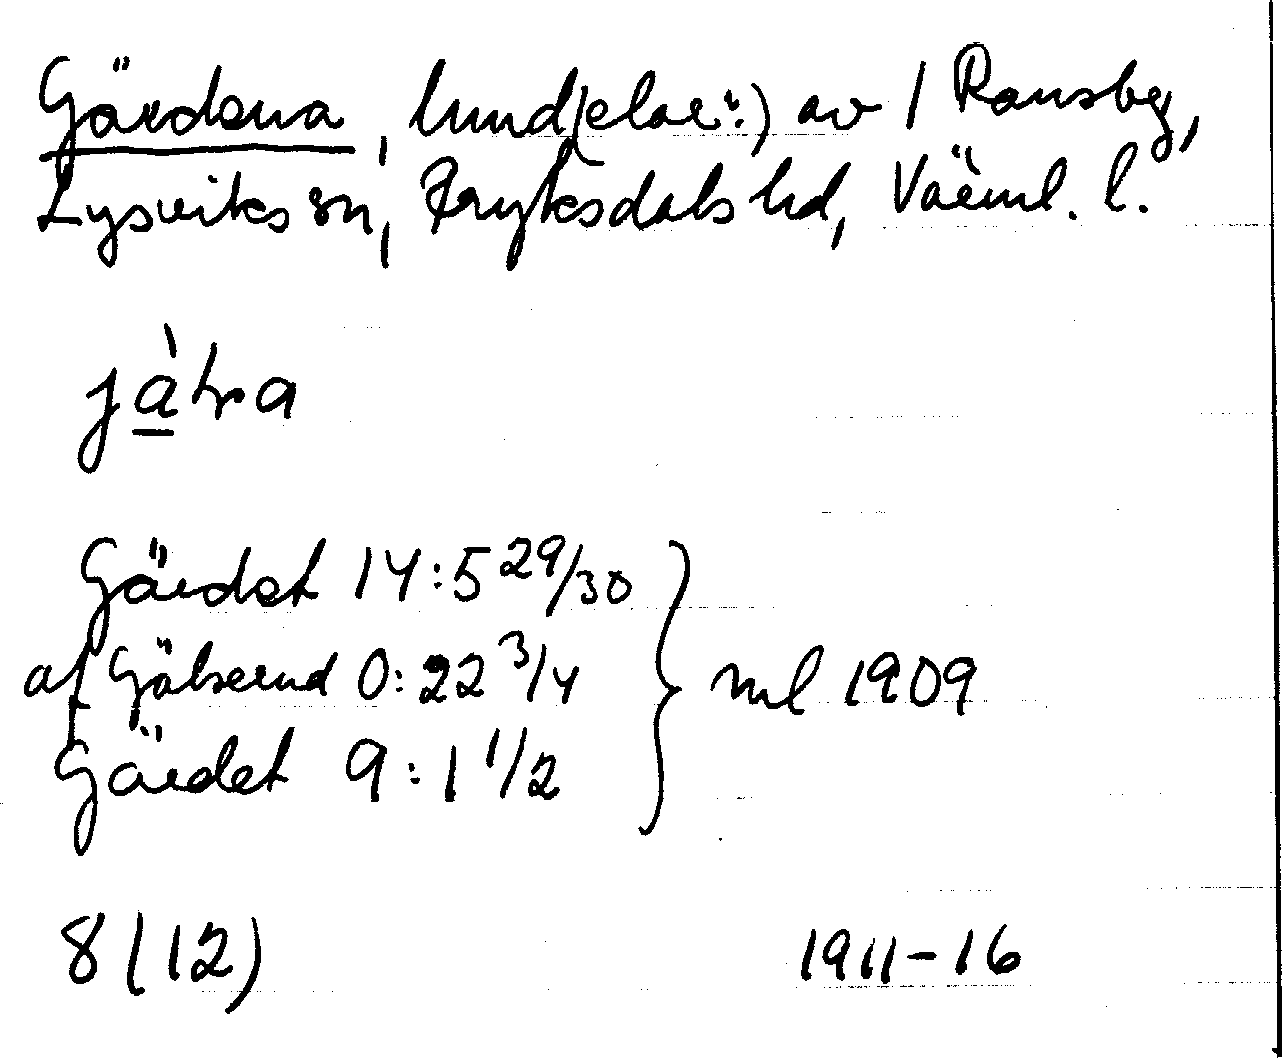 Gärdena, lund(elar:) av 1 Ransby,
Lysviks sn, Fryksdals hd, Värml. l.
jàtra
Gärdet 14:5 29/30
af Gälserud 0:22 3/4
Gärdet 9:1 1/2
ml 1909
8(12)
1911-16